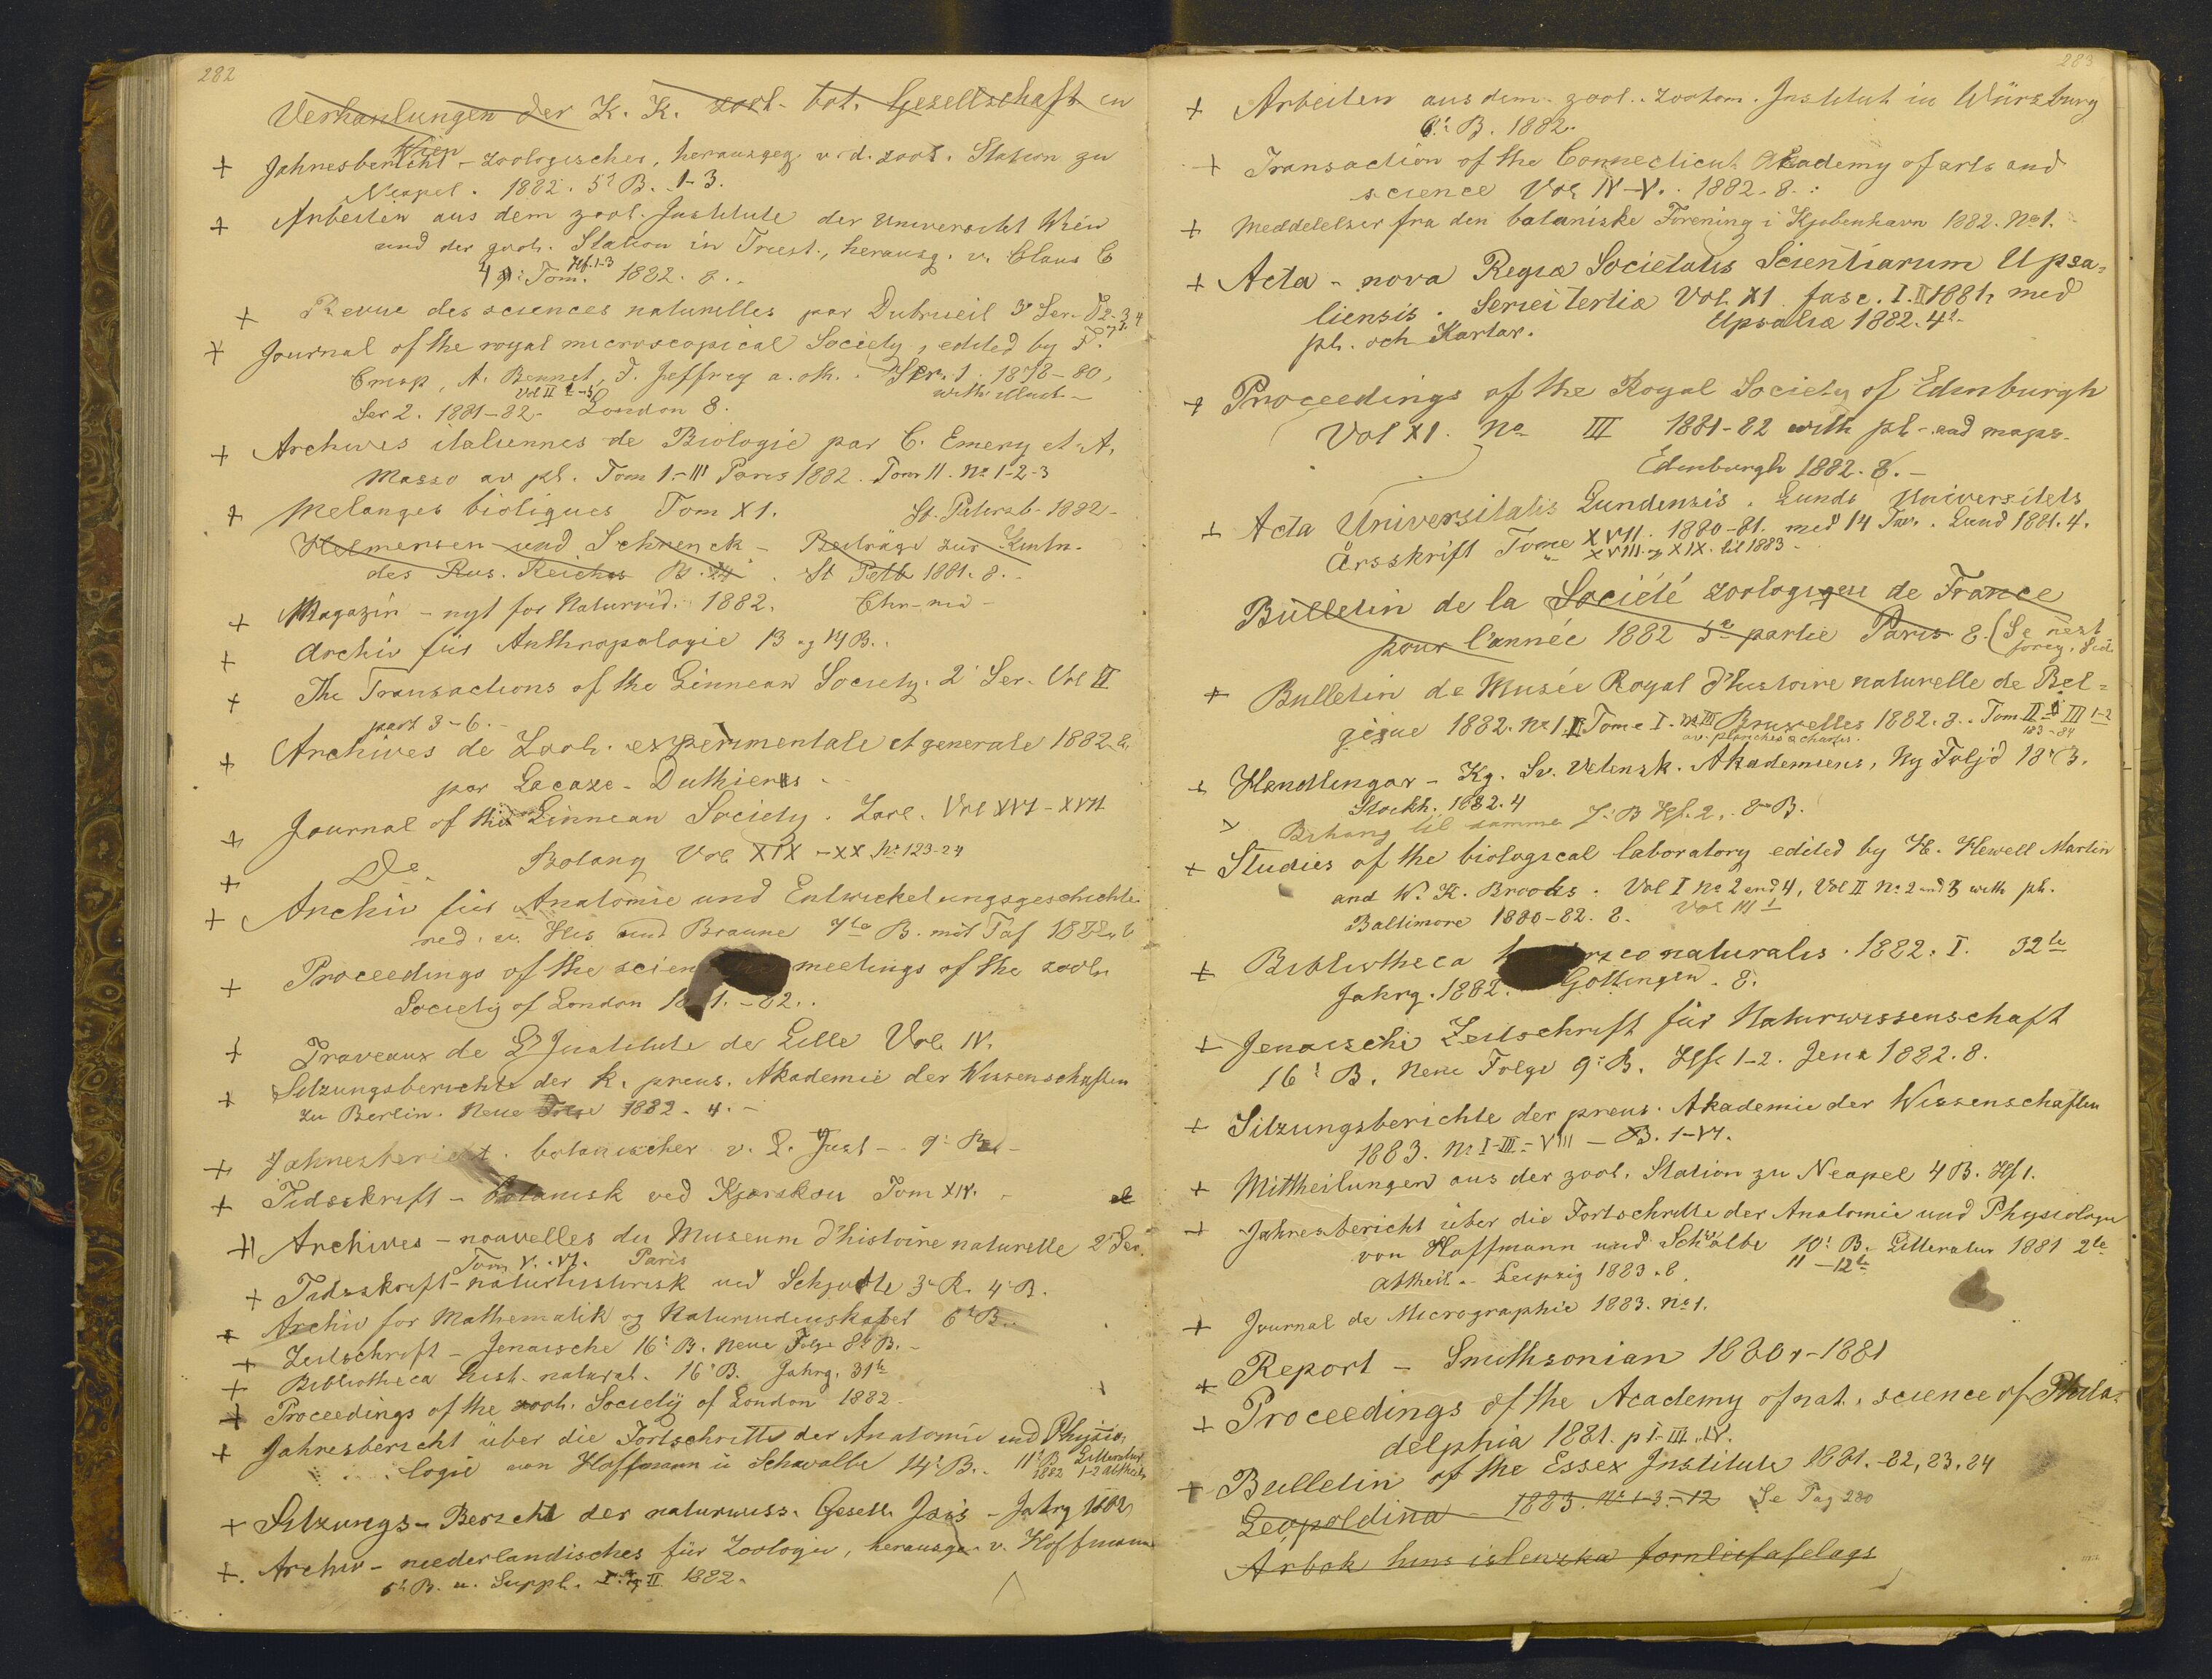 282
Verhanlungen der K. K. zool- bot. Gesellschaft in
Wien
+ Jahresbericht - zoologischer, herausgeg. v. d. zool. Station zu
Neapel. 1882. 5t B. 1-3.
+ Arbeiten aus dem zool. Institute der Universität Wien
und der zool. Station in Triest., herausg. v. Claus C
4 Tom. Hf. 1-3 1882. 8..
+ Revue des sciences naturelles par Dubrueil 3e Ser. T 2-3
+ Journal of the royal microscopical Society, edited by F.
Crisp, A. Bennet, J. Jeffrey a. oth. Ser. 1. 1878-80,
with illust-
Ser 2. 1881-82- Vol II 1-5 London 8.
+ Archives italiennes de Biologie par C. Emery et A.
Masso av pl. Tom 1-III Paris 1882. Tom II. No 1-2-3
+ Melanges bioligues Tom XI. St. Petersb- 1882-
Helmersen und Schrenck - Beiträge zur Kentn.
des Rus. Reiches B. 24. St Petb 1881. 8..
+ Magazin - nyt for Naturvid. 1882. Chr-nia -
+ Archiv für Anthropologie 13 og 14 B..
+ The Transactions of the Linnean Society. 2 Ser. Vol II
part 3-6.-
+ Archives de Zool. experimentale et generale 1882. 8.
par Lacaze-Duthiers -
+ Journal of the Linnean Society. Zool. Vol XVI-XVII
+ Do. Botany Vol XIX-XX No 123-24
+ Archiv für Anatomie und Entwickelungsgeschichte
red. v. His und Braune 7te B. mit Taf 1882. 8
+ Proceedings of the scien meetings of the zool.
Society of London 18 1.-82..
+ Traveaux de L'Institute de Lille Vol. IV.
+ Sitzungsberichte der k. preus. Akademie der Wissenschaften
zu Berlin. Neue Folge 1882. 4. -
+ Jahresbericht. botanischer v. L. Just - 9: Bd -
+ Tidsskrift - botanisk ved Kjærskou Tom XIV. -
+ Archives - nouvelles du Museum d'histoire naturelle 2e Ser.
Tom V. VI. Paris
+ Tidsskrift - naturhistorisk ved Schjødte 3 R. 4 B.
+ Archiv for Mathematik og Naturvidenskabet 6t B..
+ Zeitschrift - Jenaische 16: B. neue Folge 8t B. -
+ Bibliotheca hist. natural. 16: B. Jahrg. 31te
+ Proceedings of the zool. Society of London 1882.
+ Jahresbericht über die Fortschritte der Anatomie und Physio-
logie von Hoffmann u Schwalbe 14: B.. 11t B Litteratur
1882 1-2 Abtheil.
+ Sitzungs-Bericht der naturwiss. Gesell. Isis - Jahrg 1882
+ Archiv - niederlandisches für Zoologie, herausge. v. Hoffmann
5t B. u. Suppl. I og II 1882.
283
+ Arbeiten aus dem zool.-zootom. Institut in Würzburg
6: B. 1882.
+ Transaction of the Connecticut Akademy of arts and
science Vol IV-V. 1882. 8.
+ Meddelelser fra den botaniske Forening i Kjøbenhavn 1882. No 1.
+ Acta - nova Regiæ Societatis Scientiarum Upsa-
liensis. Seriei tertia Vol. XI. fasc. I. II 1881. med
pl. och Kartar. Upsalia 1882. 4t-
+ Proceedings of the Royal Society of Edinburgh
Vol XI. No III 1881-82 with pl- and maps-
Edinburgh 1882. 8. -
+ Acta Universitatis Lundensis. Lunds Universitets
Årsskrift Tome XVII. 1880-81. med 14 Tav. Lund 1881. 4.
" XVIII og XIX. til 1883 -
Bulletin de la Société zoologique de France
pour l'année 1882 5e partie Paris 8. (Se nest
foreg. Sid.
+ Bulletin de Musée Royal d'histoire naturelle de Bel-
gique 1882. No 1. II Tome I. No III Bruxelles 1882. 8. Tom II- III 1-2
av. planches & chartes. 183-84
+ Handlingar - Kg. Sv. Vetensk. Akademiens, Ny Följd 18 B.
Stockh. 1882. 4
Bihang til samma 7: B Hf. 2,. 8 B.
+ Studies of the biological laboratory edited by H. Hewell Martin
and W. K. Brooks. Vol I No 2 and 4, Vol II No 2 and 3 with pl.
Baltimore 1880-82. 8. Vol III 1
+ Bibliotheca rico naturalis. 1882. I. 32te
Jahrg. 1882. Göttingen. 8.
+ Jenaische Zeitschrift für Naturwissenschaft
16: B. Neue Folge 9: B. Hft 1-2. Jena 1882. 8.
+ Sitzungsberichte der preus. Akademie der Wissenschaften
1883. No I-III-VIII - B. 1-VI.
+ Mittheilungen aus der zool. Station zu Neapel 4 B. Hf 1.
+ Jahresbericht über die Fortschritte der Anatomie und Physiologie
von Hoffmann und Schwalbe 10: B. Litteratur 1881 2te
Abtheil. - Leipzig 1883. 8. 11-12te
+ Journal de Micrographie 1883. No 1.
+ Report - Smithsonian 1880-1881
+ Proceedings of the Academy of nat. science of Phila-
delphia 1881. p I-III. IV.
+ Bulletin of the Essex Institute 1881.-82, 83. 84
Leopoldina - 1883. No 1-3-12 Se Pag 280
Arbok hins islenzka fornleifafelags